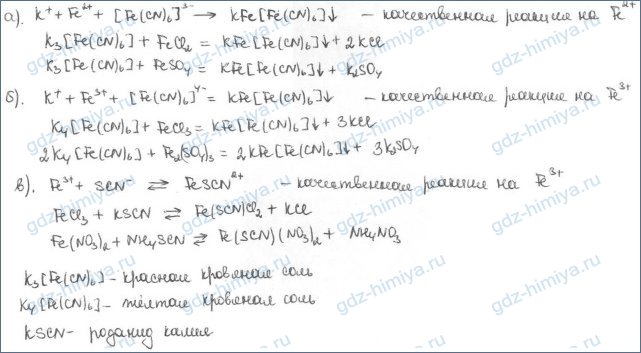 а). K⁺ + Fe²⁺ + [Fe(CN)₆]³⁻ → KFe[Fe(CN)₆]↓ – качественная реакция на Fe²⁺
K₃[Fe(CN)₆] + FeCl₂ = KFe[Fe(CN)₆]↓ + 2KCl
K₃[Fe(CN)₆] + FeSO₄ = KFe[Fe(CN)₆]↓ + K₂SO₄
б). K⁺ + Fe³⁺ + [Fe(CN)₆]⁴⁻ = KFe[Fe(CN)₆]↓ – качественная реакция на Fe³⁺
K₄[Fe(CN)₆] + FeCl₃ = KFe[Fe(CN)₆]↓ + 3KCl
2K₄[Fe(CN)₆] + Fe₂(SO₄)₃ = 2KFe[Fe(CN)₆]↓ + 3K₂SO₄
в). Fe³⁺ + SCN⁻ ⇄ FeSCN²⁺ – качественная реакция на Fe³⁺
FeCl₃ + KSCN ⇄ Fe(SCN)Cl₂ + KCl
Fe(NO₃)₂ + NH₄SCN ⇄ Fe(SCN)(NO₃)₂ + NH₄NO₃
K₃[Fe(CN)₆] – красная кровяная соль
K₄[Fe(CN)₆] – жёлтая кровяная соль
KSCN – роданид калия
gdz-himiya.ru
gdz-himiya.ru
gdz-himiya.ru
gdz-himiya.ru
gdz-himiya.ru
gdz-himiya.ru
gdz-himiya.ru
gdz-himiya.ru